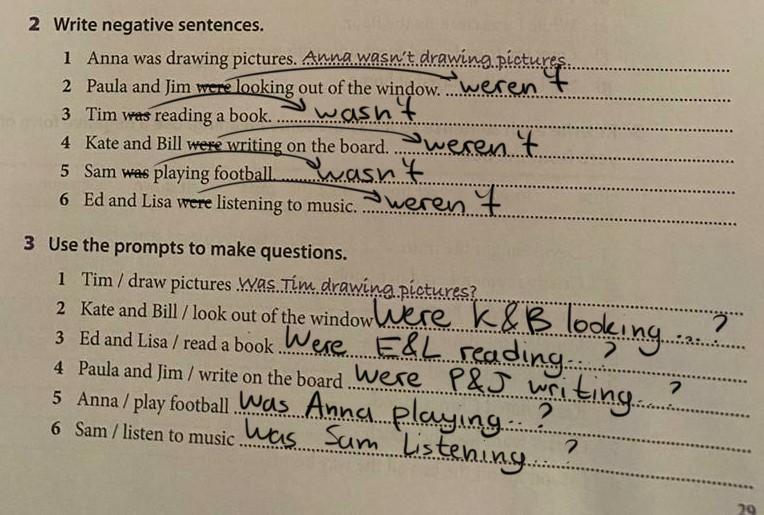 2 Write negative sentences.
1 Anna was drawing pictures. Anna wasn't drawing pictures.
2 Paula and Jim were looking out of the window. weren't
3 Tim was reading a book. wasn't
4 Kate and Bill were writing on the board. weren't
5 Sam was playing football. wasn't
6 Ed and Lisa were listening to music. weren't
3 Use the prompts to make questions.
1 Tim / draw pictures Was Tim drawing pictures?
2 Kate and Bill / look out of the window Were K&B looking ...?
3 Ed and Lisa / read a book Were E&L reading...?
4 Paula and Jim / write on the board Were P&J writing...?
5 Anna / play football Was Anna playing...?
6 Sam / listen to music Was Sam Listening...?
29